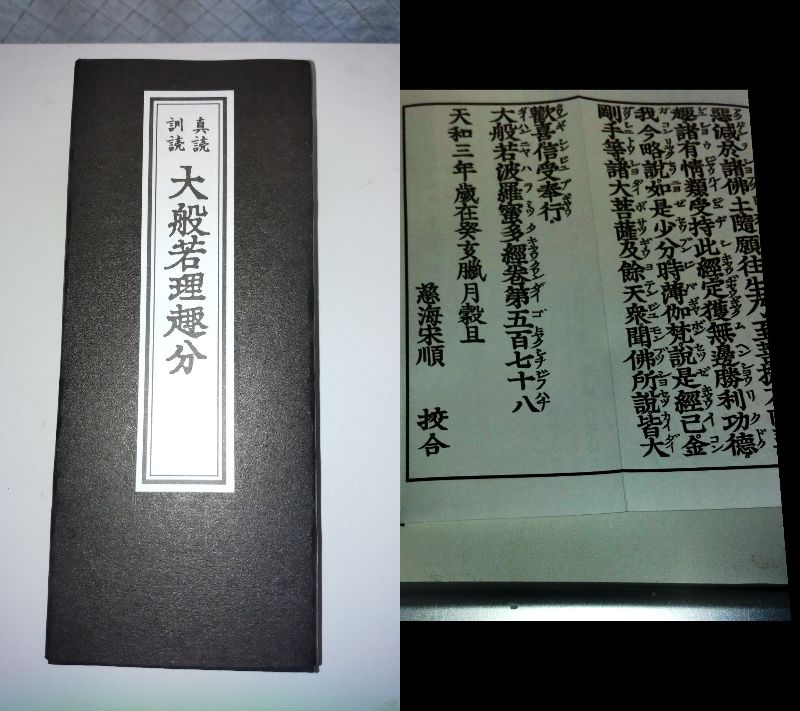 真読
訓読
大般若理趣分
惡滅於諸佛土隨願往生
趣諸有情類受持此經定獲無邊勝利功德
我今略說如是少分時薄伽梵說是經已金
剛手等諸大菩薩及餘天衆聞佛所說皆大
歡喜信受奉行
大般若波羅蜜多經卷第五百七十八
天和三年歲在癸亥臘月穀旦
慈海宋順 挍合